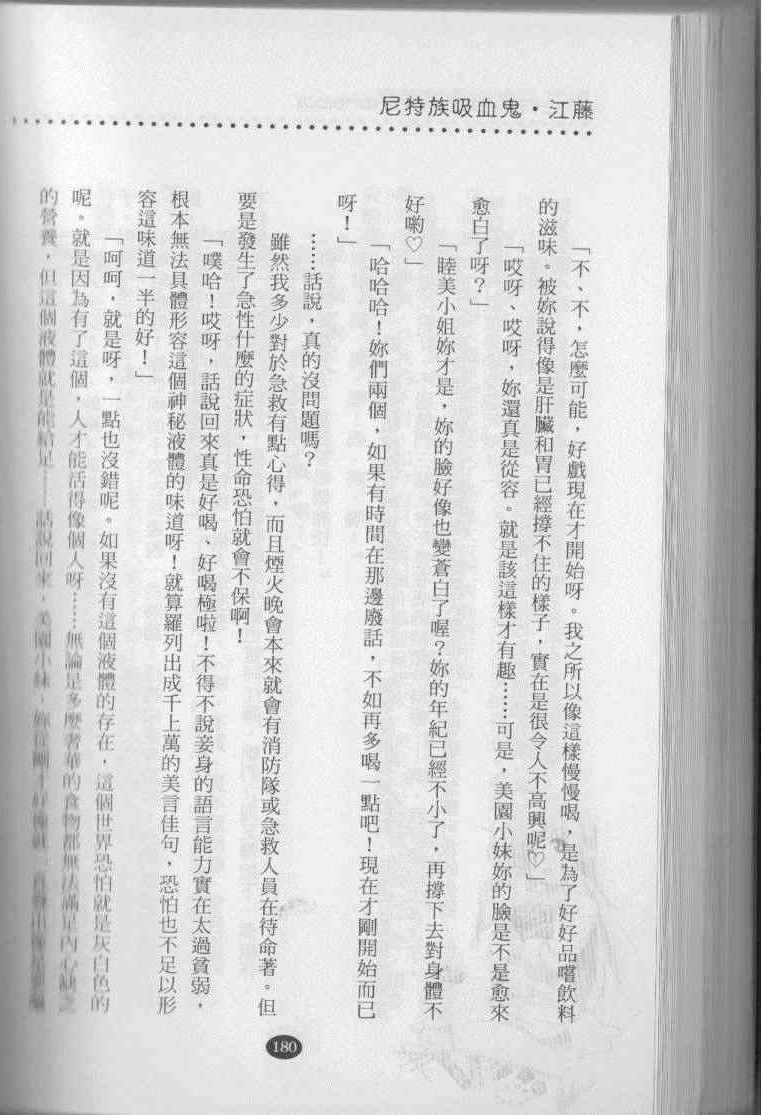 尼特族吸血鬼・江藤
「不、不，怎麼可能，好戲現在才開始呀。我之所以像這樣慢慢喝，是為了好好品嚐飲料
的滋味。被妳說得像是肝臟和胃已經撐不住的樣子，實在是很令人不高興呢♡」
「哎呀、哎呀，妳還真是從容。就是該這樣才有趣……可是，美園小妹妳的臉是不是愈來
愈白了呀？」
「睦美小姐妳才是，妳的臉好像也變蒼白了喔？妳的年紀已經不小了，再撐下去對身體不
好喲♡」
「哈哈哈！妳們兩個，如果有時間在那邊廢話，不如再多喝一點吧！現在才剛開始而已
呀！」
……話說，真的沒問題嗎？
雖然我多少對於急救有點心得，而且煙火晚會本來就會有消防隊或急救人員在待命著。但
要是發生了急性什麼的症狀，性命恐怕就會不保啊！
「噗哈！哎呀，話說回來真是好喝、好喝極啦！不得不說妾身的語言能力實在太過貧弱，
根本無法具體形容這個神秘液體的味道呀！就算羅列出成千上萬的美言佳句，恐怕也不足以形
容這味道一半的好！」
「呵呵，就是呀，一點也沒錯呢。如果沒有這個液體的存在，這個世界恐怕就是灰白色的
呢。就是因為有了這個，人才能活得像個人呀……無論是多麼奢華的食物都無法滿足內心缺乏
的營養，但這個液體就是能給足……話說回來，美園小妹，妳從剛才
180